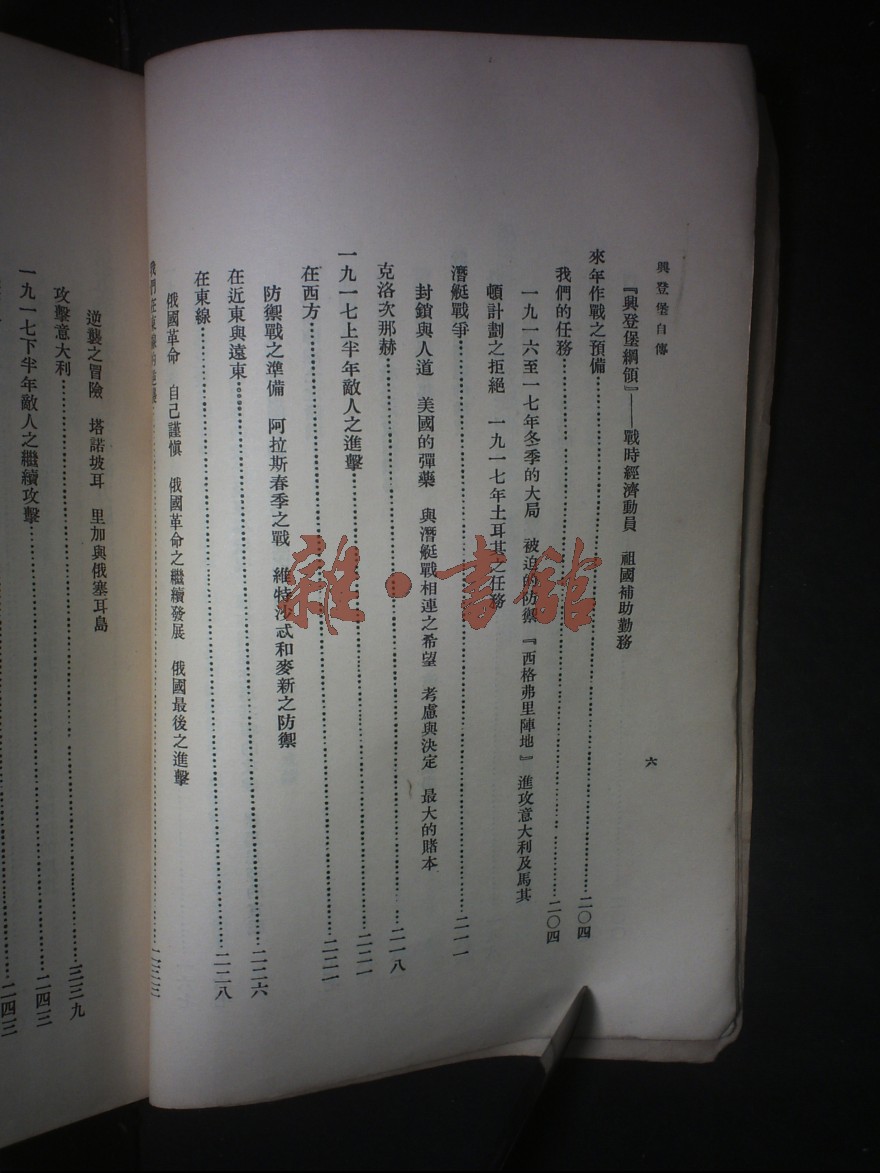 興登堡自傳
六
『興登堡綱領』——戰時經濟動員　祖國補助勤務
來年作戰之預備……二〇四
我們的任務……二〇四
一九一六至一七年冬季的大局　被迫的防禦　『西格弗里陣地』　進攻意大利及馬其
頓計劃之拒絕　一九一七年土耳其之任務
潛艇戰爭……二一一
封鎖與人道　美國的彈藥　與潛艇戰相連之希望　考慮與決定　最大的賭本
克洛次那赫……二一八
一九一七上半年敵人之進擊……二二一
在西方……二二一
防禦戰之準備　阿拉斯春季之戰　維特沙忒和麥新之防禦
在近東與遠東……二二六
在東線……二二八
俄國革命　自己謹慎　俄國革命之繼續發展　俄國最後之進擊
我們在東線的逆襲……二三三
逆襲之冒險　塔諾坡耳　里加與俄塞耳島
攻擊意大利……二三九
一九一七下半年敵人之繼續攻擊……二四三
二四三
雜·書館